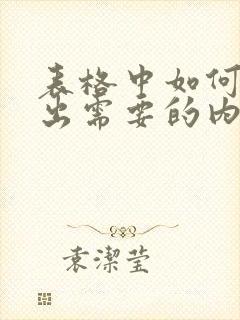 表格中如何
出需要的内
袁潔莹